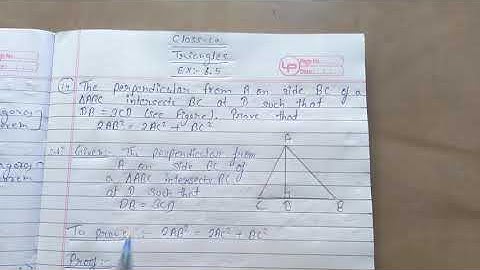 Class-10
Triangles
Ex:- 6.5
(14) The perpendicular from A on side BC of a
ΔABC intersects BC at D such that
DB = 3CD (see Figure). Prove that
2AB² = 2AC² + BC²
Sol:- Given:- The perpendicular from
A on side BC of
a ΔABC intersects BC
at D such that
DB = 3CD
A
C D B
To prove:- 2AB² = 2AC² + BC²
Proof:-